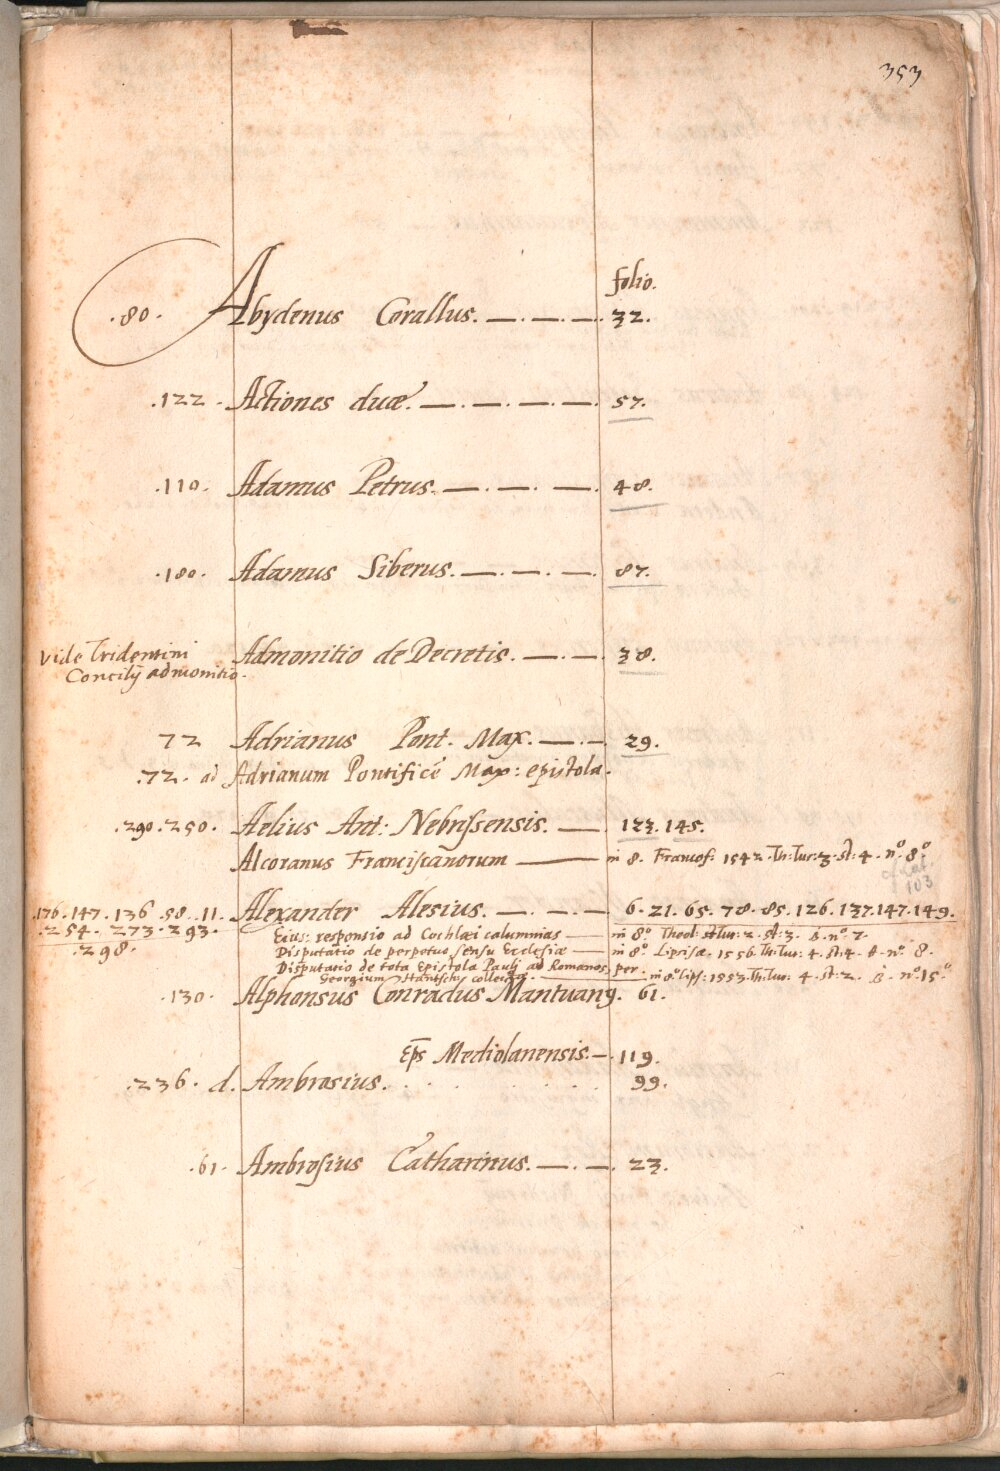 353
folio.
.80. Abydenus Corallus. 32.
.122. Actiones duæ. 57.
.110. Adamus Petrus. 48.
.180. Adamus Siberus. 87.
Vide Tridentini Admonitio de Decretis. 38.
Concilij admonitio.
72 Adrianus Pont. Max. 29.
.72. ad Adrianum Pontificē Max: epistola.
.290.250. Aelius Ant: Nebrissensis. 123.145.
Alcoranus Franciscanorum in 8. Francof: 1542. Th: Lur: 3. st: 4. nº. 8º
103
.176.147.136.58.11. Alexander Alesius. 6.21.65.78.85.126.137.147.149.
.254.273.293. Eius: responsio ad Cochlæi calumnias in 8º Theol: Lur: 2. st: 3. nº. 7.
.298. Disputatio de perpetuo sensu Ecclesiæ in 8º. Lipsiæ. 1556. Th: Lur: 4. st: 4. nº. 8.
Disputatio de tota Epistola Paulj ad Romanos, per
Georgium collecta. in 8º lips: 1553. Th: Lur: 4. st: 2. nº 15º
.130. Alphonsus Conradus Mantuanꝰ. 61.
Ep̄s Mediolanensis. 119.
.236. d. Ambrosius. 99.
.61. Ambrosius Catharinus. 23.